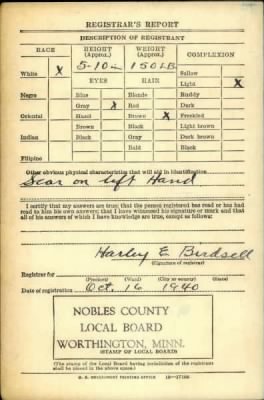 REGISTRAR'S REPORT
DESCRIPTION OF REGISTRANT
RACE HEIGHT (Approx.) WEIGHT (Approx.) COMPLEXION
White X 5-10 in 150 LB Sallow
EYES HAIR Light X
Negro Blue Blonde Ruddy
Gray X Red Dark
Oriental Hazel Brown X Freckled
Brown Black Light brown
Indian Black Gray Dark brown
Bald Black
Filipino
Other obvious physical characteristics that will aid in identification
Scar on left Hand
I certify that my answers are true; that the person registered has read or has had
read to him his own answers; that I have witnessed his signature or mark and that
all of his answers of which I have knowledge are true, except as follows:
Harley E Birdsell
(Signature of registrar)
Registrar for
(Precinct) (Ward) (City or county) (State)
Date of registration Oct. 16 1940
NOBLES COUNTY
LOCAL BOARD
WORTHINGTON, MINN.
(STAMP OF LOCAL BOARD)
(The stamp of the Local Board having jurisdiction of the registrant
shall be placed in the above space.)
U. S. GOVERNMENT PRINTING OFFICE